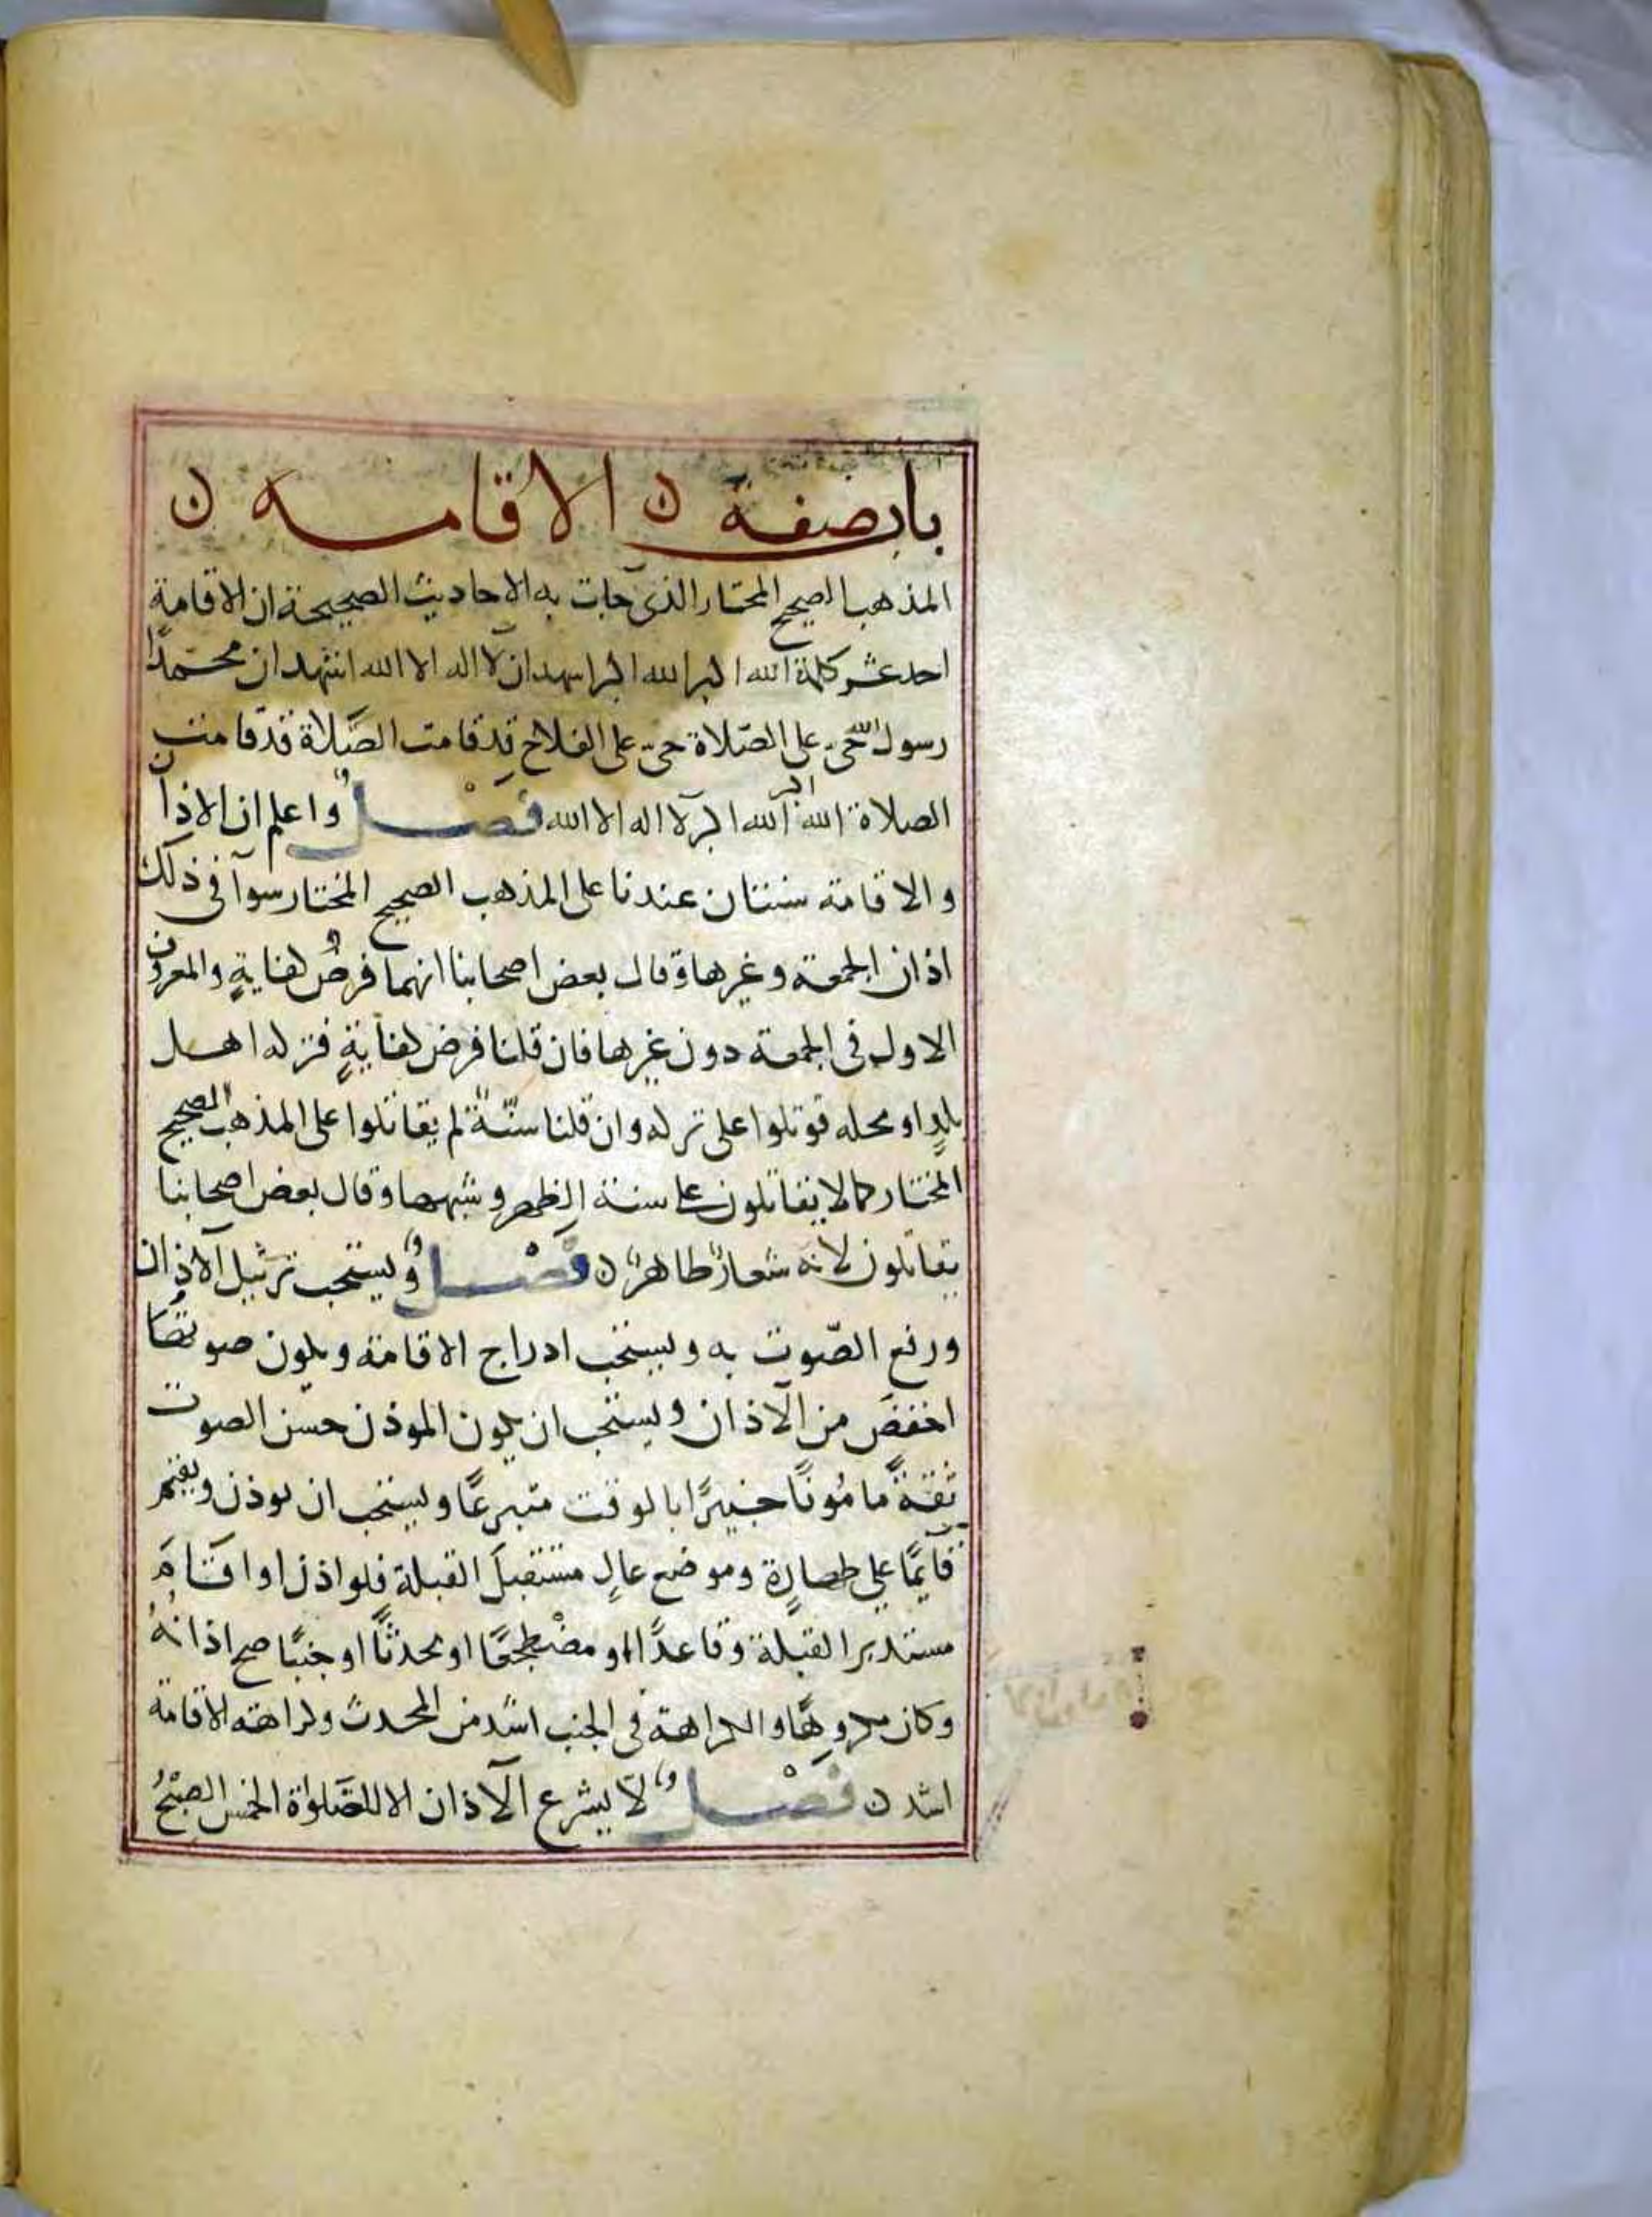 باب صفة ن الاقامه ن
المذهب الصحيح المختار الذى جات به الاحاديث الصحيحة ان الاقامة
احد عشر كلمة الله اكبر الله اكبر اشهد ان لا اله الا الله اشهد ان محمّدًا
رسول الله حى على الصّلاة حىّ على الفلاح قد قامت الصَّلاة قد قامت
الصلاة الله اكبر الله اكبر لا اله الا الله فصْل واعلم ان الاذان
والاقامة سنتان عندنا على المذهب الصحيح المختار سوآ فى ذلك
اذان الجمعة وغيرها وقال بعض اصحابنا انهما فرضُ كفايةٍ والمعروف
الاول فى الجمعة دون غيرها فان قلنا فرض كفايةٍ فتركه اهل
بلدٍ او محله قوتلوا على تركه وان قلنا سنّة لم يقاتلوا على المذهب الصحيح
المختار كما لا يقاتلون على سنة الظهر وشبهها وقال بعض اصحابنا
يقاتلون لانه شعارٌ ظاهرٌ ن فصْل ويستحب ترتيل الاذان
ورفع الصّوت به ويستحب ادراج الاقامة ويكون صوتها
اخفضَ من الاذان ويستحب ان يكون الموذن حسن الصوت
ثقةً مامُونًا خبيرًا بالوقت متبرعًا ويستحب ان يوذن ويقيم
قآيمًا على طهارةٍ وموضع عالٍ مستقبلَ القبلة فلو اذن او اقامَ
مستدبر القبلة وقاعدًا او مضْطجعًا او محدثًا او جنبًا صح اذانُهُ
وكان مكروهًا والكراهة فى الجنب اشد من المحدث وكراهة الاقامة
اشد ن فصْل لا يشرع الاذان الا للصَّلواة الخمس الصبْحُ